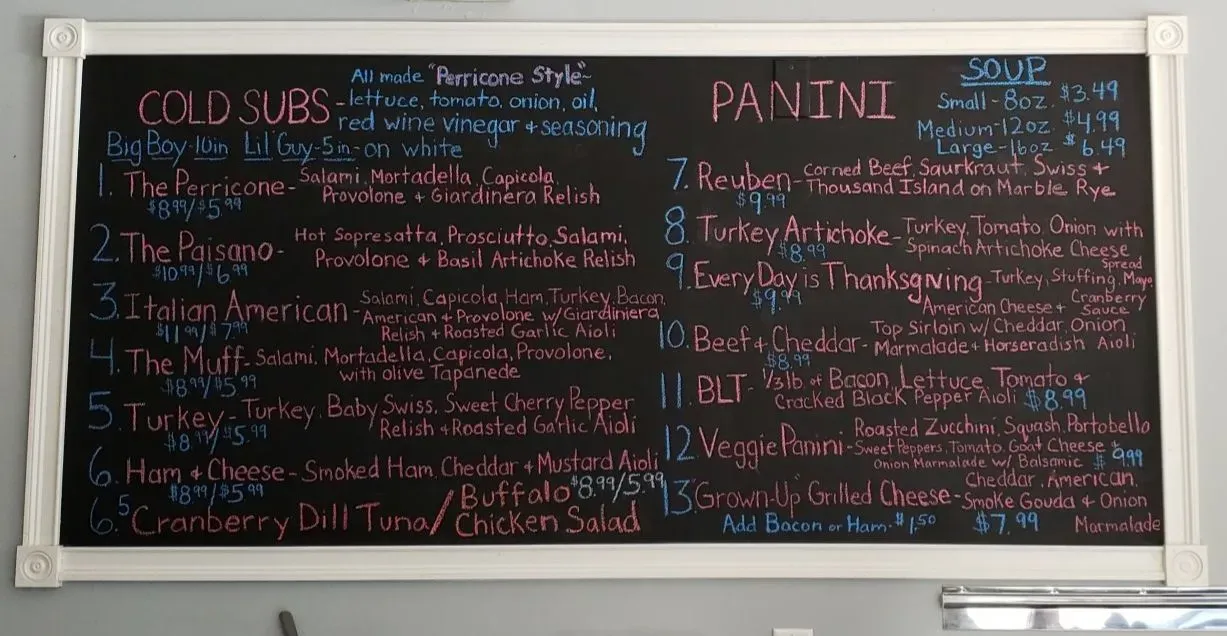 All made "Perricone Style"~
COLD SUBS - lettuce, tomato, onion, oil,
red wine vinegar + seasoning
Big Boy-10in Lil' Guy-5in-on white
1. The Perricone - Salami, Mortadella, Capicola,
Provolone + Giardinera Relish
$8.99/$5.99
2. The Paisano - Hot Sopresatta, Prosciutto, Salami,
Provolone + Basil Artichoke Relish
$10.99/$6.99
3. Italian American - Salami, Capicola, Ham, Turkey, Bacon,
American + Provolone w/Giardiniera
Relish + Roasted Garlic Aioli
$11.99/$7.99
4. The Muff - Salami, Mortadella, Capicola, Provolone,
with olive Tapanede
$8.99/$5.99
5. Turkey - Turkey, Baby Swiss, Sweet Cherry Pepper
Relish + Roasted Garlic Aioli
$8.99/$5.99
6. Ham + Cheese - Smoked Ham, Cheddar + Mustard Aioli
$8.99/$5.99
6.5 Cranberry Dill Tuna / Buffalo Chicken Salad
$8.99/5.99
PANINI
SOUP
Small - 8oz. $3.49
Medium-12oz. $4.99
Large-16oz $6.49
7. Reuben - Corned Beef, Saurkraut, Swiss +
Thousand Island on Marble Rye
$9.99
8. Turkey Artichoke - Turkey, Tomato, Onion with
Spinach Artichoke Cheese
Spread
$8.99
9. Every Day is Thanksgiving - Turkey, Stuffing, Mayo,
American Cheese + Cranberry
Sauce
$9.99
10. Beef + Cheddar - Top Sirloin w/ Cheddar, Onion
Marmalade + Horseradish Aioli
$8.99
11. BLT - 1/3 lb. of Bacon, Lettuce, Tomato +
Cracked Black Pepper Aioli $8.99
12. Veggie Panini - Roasted Zucchini, Squash, Portobello
Sweet Peppers, Tomato, Goat Cheese +
Onion Marmalade w/ Balsamic $9.99
13. "Grown-Up" Grilled Cheese - Cheddar, American,
Smoke Gouda + Onion
Marmalade
Add Bacon or Ham - $1.50 $7.99